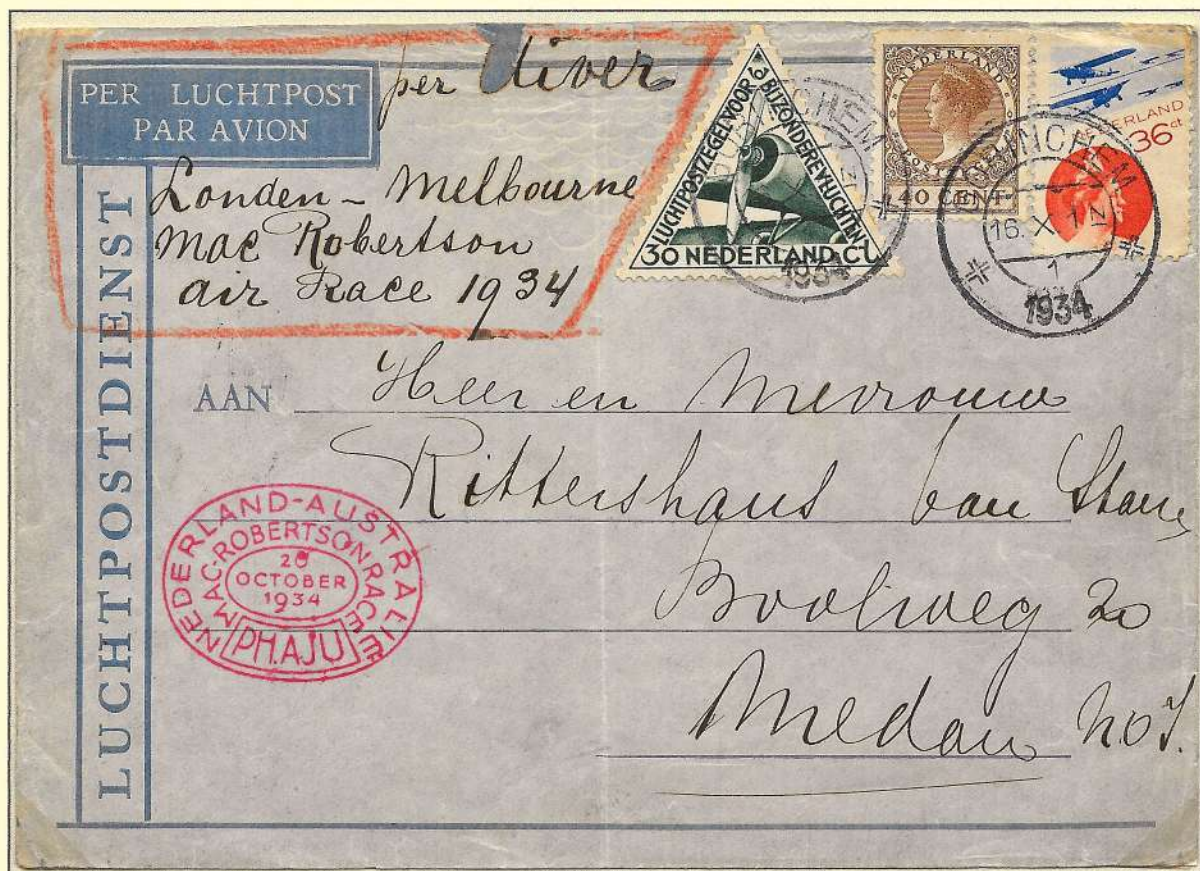 PER LUCHTPOST
PAR AVION
per Uiver
Londen - Melbourne
Mac Robertson
air Race 1934
LUCHTPOSTDIENST
LUCHTPOSTZEGEL VOOR BIJZONDERE VLUCHTEN
30 NEDERLAND CT.
NEDERLAND
40 CENT
NEDERLAND
36 ct
GORINCHEM
1934
GORINCHEM
16. X. 17
1
1934
AAN Heer en Mevrouw
Rittershaus van
20
Medan N.O.I.
NEDERLAND-AUSTRALIE
MAC-ROBERTSON RACE
20
OCTOBER
1934
PH.AJU